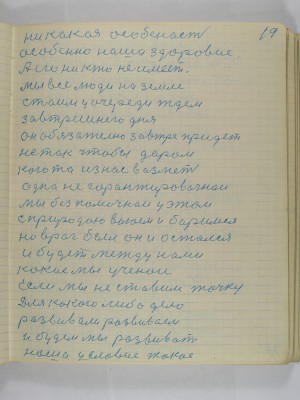 19
никакая особеност
особенно наша здоровие
Аего никто не имеет.
мы все люди на земле
стоим и очереди ждем
завтрешнего дня
он обязателно завтре придет
не так чтобы даром
кого то из нас возмет
одна не гарантированои
мы без помочнои у этом
с природою воюем и баримся
но враг бели он и остался
и будет между нами
какие мы ученои
если мы не ставим точку
Для какого либо дело
развивали развиваем
и будем мы развиват
наша условие такое